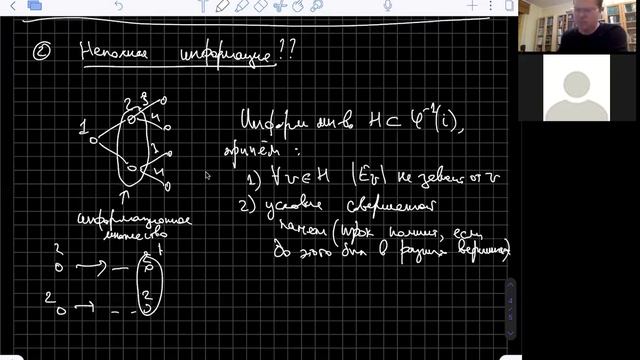 ② Неполная информация??
1
2
3
4
3
4
информационное
множество
Информ мн-во H ⊂ φ⁻¹(i),
причём:
1) ∀v∈H |E_v| не зависит от v
2) условие совершенной
памяти (игрок помнит, если
до этого был в разных вершинах)
2
1
2
2
2
4/5